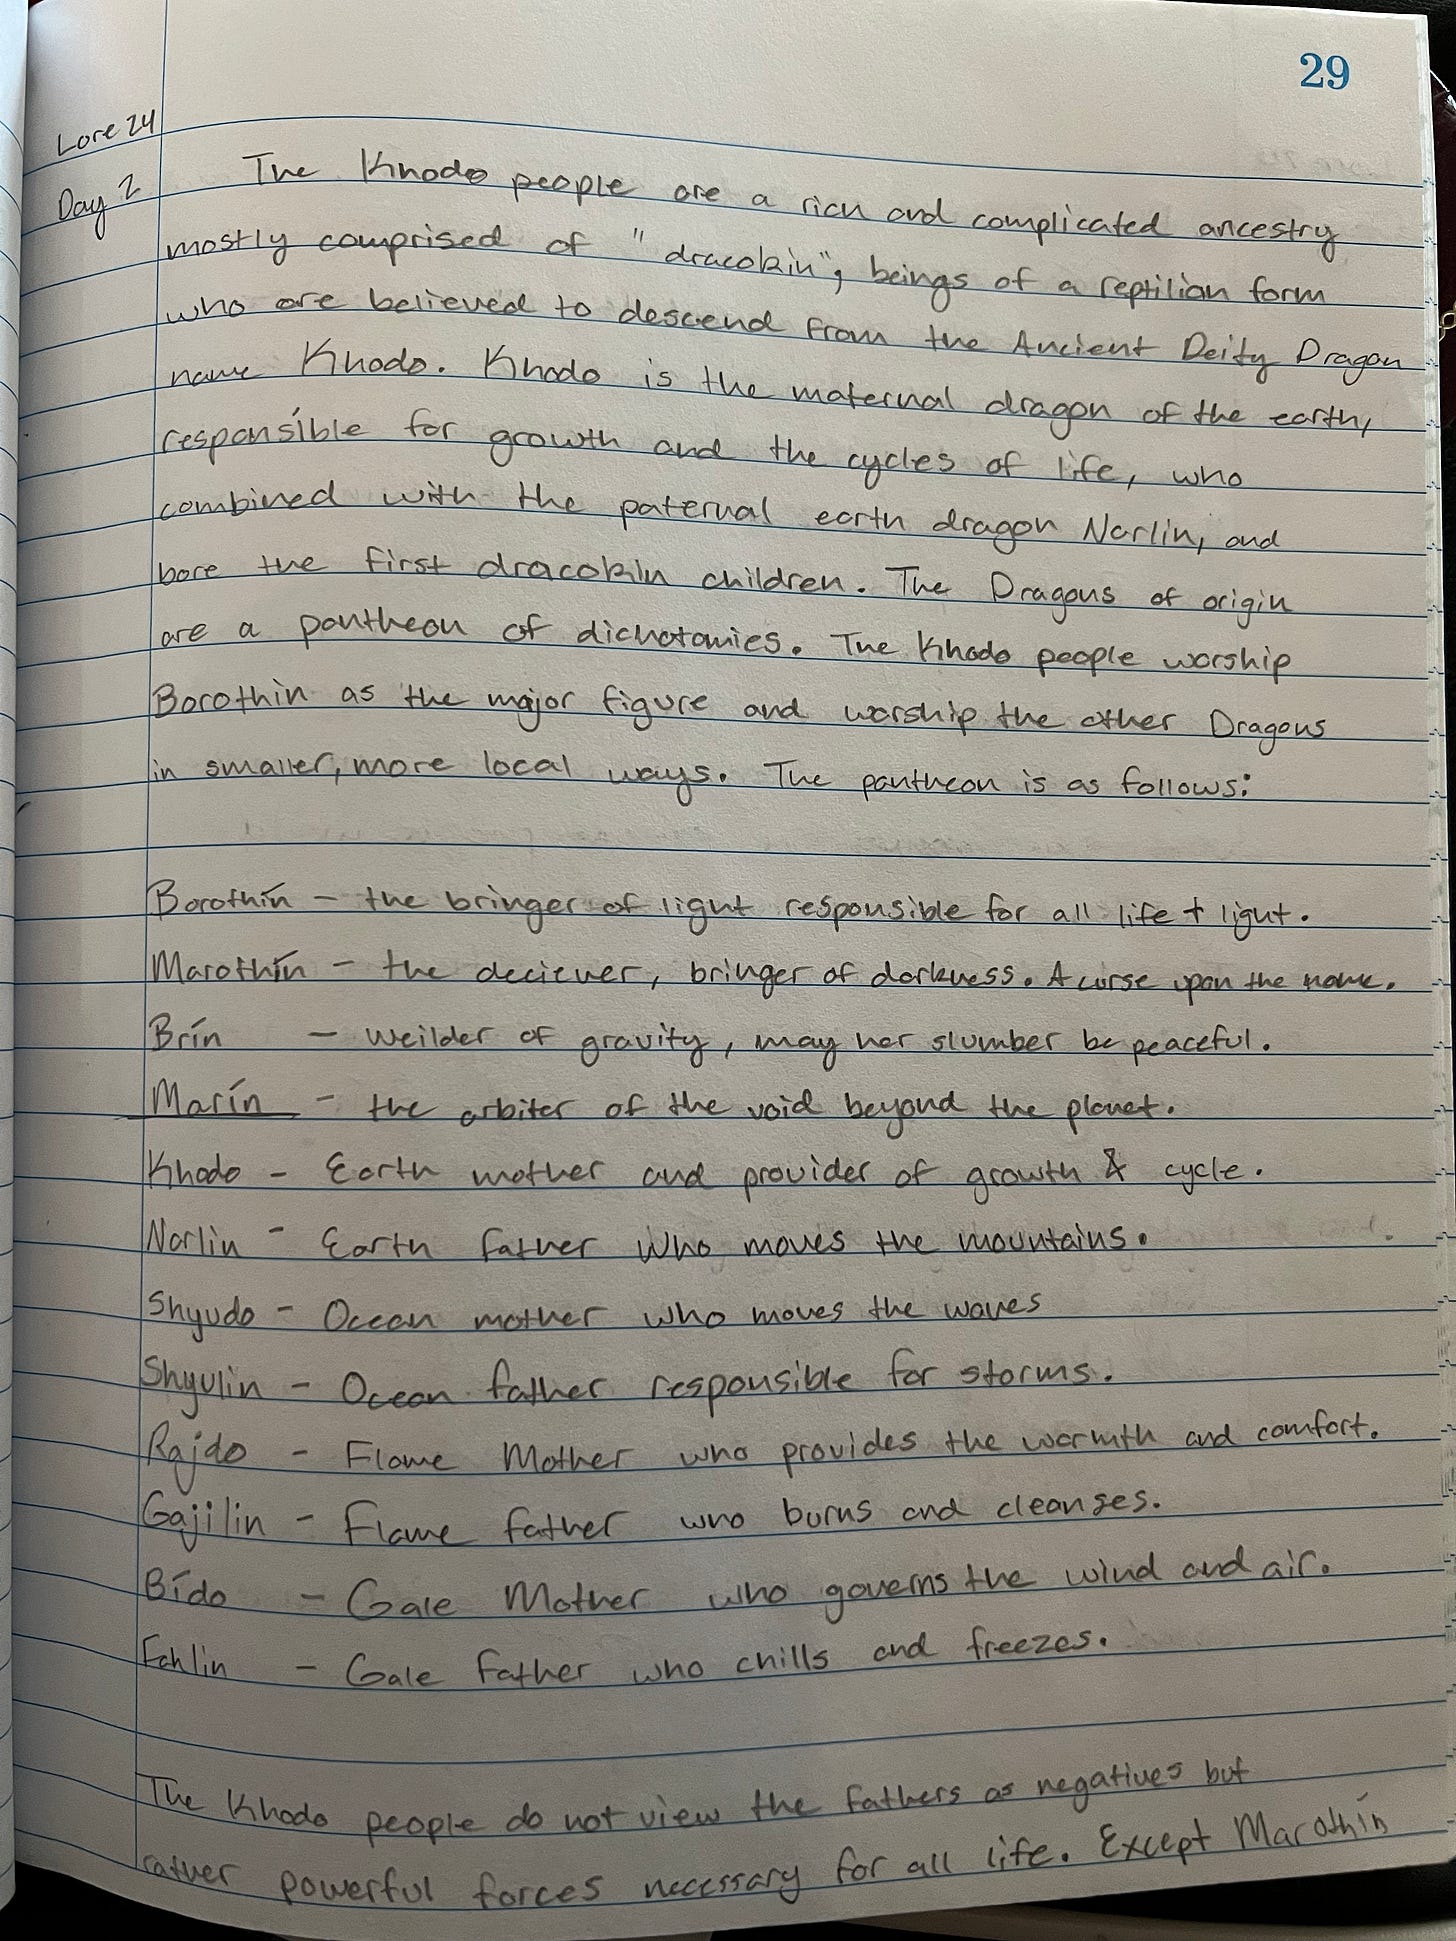 29
Lore 24
Day 2
The Khodo people are a rich and complicated ancestry
mostly comprised of "dracokin", beings of a reptilian form
who are believed to descend from the Ancient Deity Dragon
name Khodo. Khodo is the maternal dragon of the earth,
responsible for growth and the cycles of life, who
combined with the paternal earth dragon Norlin, and
bore the first dracokin children. The Dragons of origin
are a pantheon of dichotomies. The Khodo people worship
Borothin as the major figure and worship the other Dragons
in smaller, more local ways. The pantheon is as follows:
Borothín - the bringer of light responsible for all life + light.
Marothín - the deciever, bringer of darkness. A curse upon the name.
Brín - weilder of gravity, may her slumber be peaceful.
Marín - the arbiter of the void beyond the planet.
Khodo - Earth mother and provider of growth & cycle.
Norlin - Earth father who moves the mountains.
Shyudo - Ocean mother who moves the waves
Shyulin - Ocean father responsible for storms.
Rajdo - Flame Mother who provides the warmth and comfort.
Gajilin - Flame father who burns and cleanses.
Bído - Gale Mother who governs the wind and air.
Fahlin - Gale father who chills and freezes.
The Khodo people do not view the fathers as negatives but
rather powerful forces necessary for all life. Except Marothín